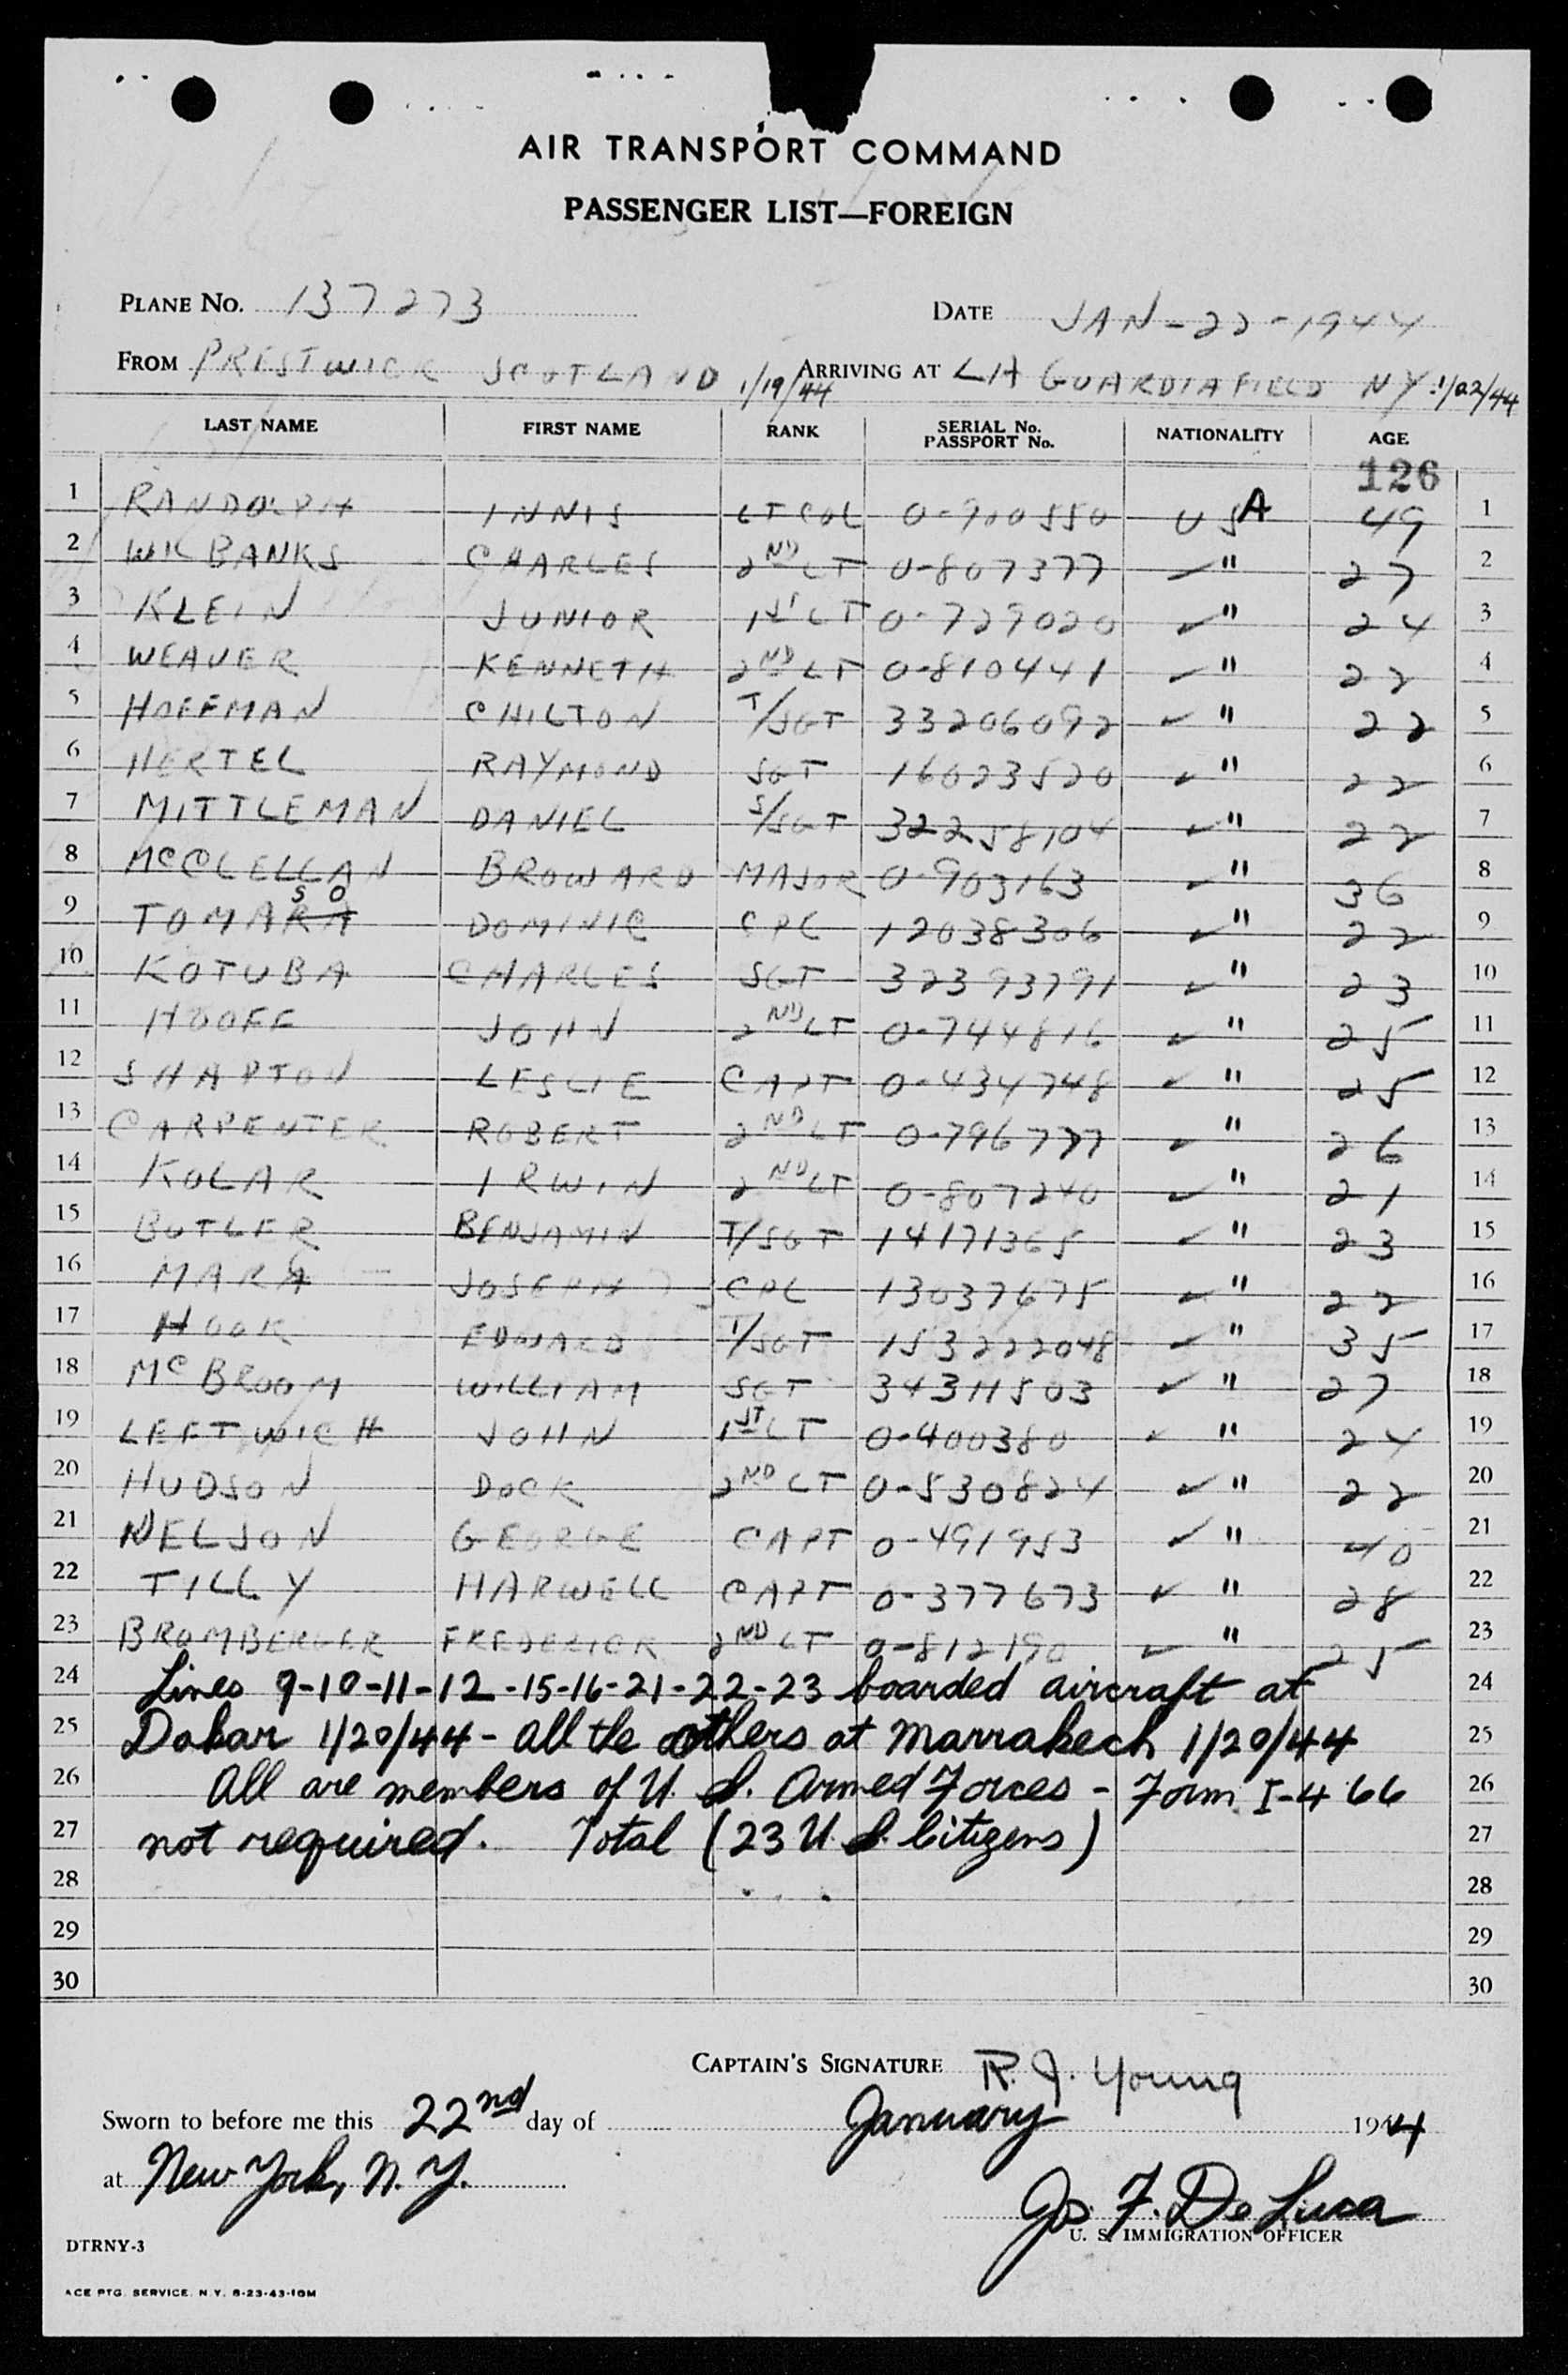 AIR TRANSPORT COMMAND
PASSENGER LIST—FOREIGN
PLANE NO. 137273 DATE JAN-22-1944
FROM PRESTWICK SCOTLAND 1/19/44 ARRIVING AT LA GUARDIA FIELD NY 1/22/44
LAST NAME FIRST NAME RANK SERIAL No. PASSPORT No. NATIONALITY AGE
126
1 RANDOLPH INNIS LT COL 0-900550 USA 49 1
2 WILBANKS CHARLES 2ND LT 0-807377 ✓ " 27 2
3 KLEIN JUNIOR 1ST LT 0-729020 ✓ " 24 3
4 WEAVER KENNETH 2ND LT 0-810441 ✓ " 22 4
5 HOFFMAN CHILTON T/SGT 33206092 ✓ " 22 5
6 HERTEL RAYMOND SGT 16023520 ✓ " 22 6
7 MITTLEMAN DANIEL S/SGT 32258104 ✓ " 22 7
8 McCLELLAN BROWARD MAJOR 0-903163 ✓ " 36 8
9 TOMASO DOMINIC CPL 12038306 ✓ " 22 9
10 KOTUBA CHARLES SGT 32393791 ✓ " 23 10
11 HOOFF JOHN 2ND LT 0-744816 ✓ " 25 11
12 SHAPTON LESLIE CAPT 0-434748 ✓ " 25 12
13 CARPENTER ROBERT 2ND LT 0-796777 ✓ " 26 13
14 KOLAR IRWIN 2ND LT 0-807240 ✓ " 21 14
15 BUTLER BENJAMIN T/SGT 14171365 ✓ " 23 15
16 MARA JOSEPH CPL 13037675 ✓ " 22 16
17 HOOK EDWARD T/SGT 153222048 ✓ " 35 17
18 McBROOM WILLIAM SGT 34311503 ✓ " 27 18
19 LEFTWICH JOHN 1ST LT 0-400380 ✓ " 24 19
20 HUDSON DOCK 2ND LT 0-530824 ✓ " 22 20
21 NELSON GEORGE CAPT 0-491953 ✓ " 40 21
22 TILLY HARWELL CAPT 0-377673 ✓ " 28 22
23 BROMBERGER FREDERICK 2ND LT 0-812190 ✓ " 25 23
24 Lines 9-10-11-12-15-16-21-22-23 boarded aircraft at 24
25 Dakar 1/20/44 - all the others at Marrakech 1/20/44 25
26 All are members of U.S. Armed Forces - Form I-466 26
27 not required. Total (23 U.S. Citizens) 27
28 28
29 29
30 30
CAPTAIN'S SIGNATURE R. J. Young
Sworn to before me this 22nd day of January 1944
at New York, N.Y.
Jos. F. De Luca
U. S. IMMIGRATION OFFICER
DTRNY-3
ACE PTG. SERVICE. N.Y. 8-23-43-10M